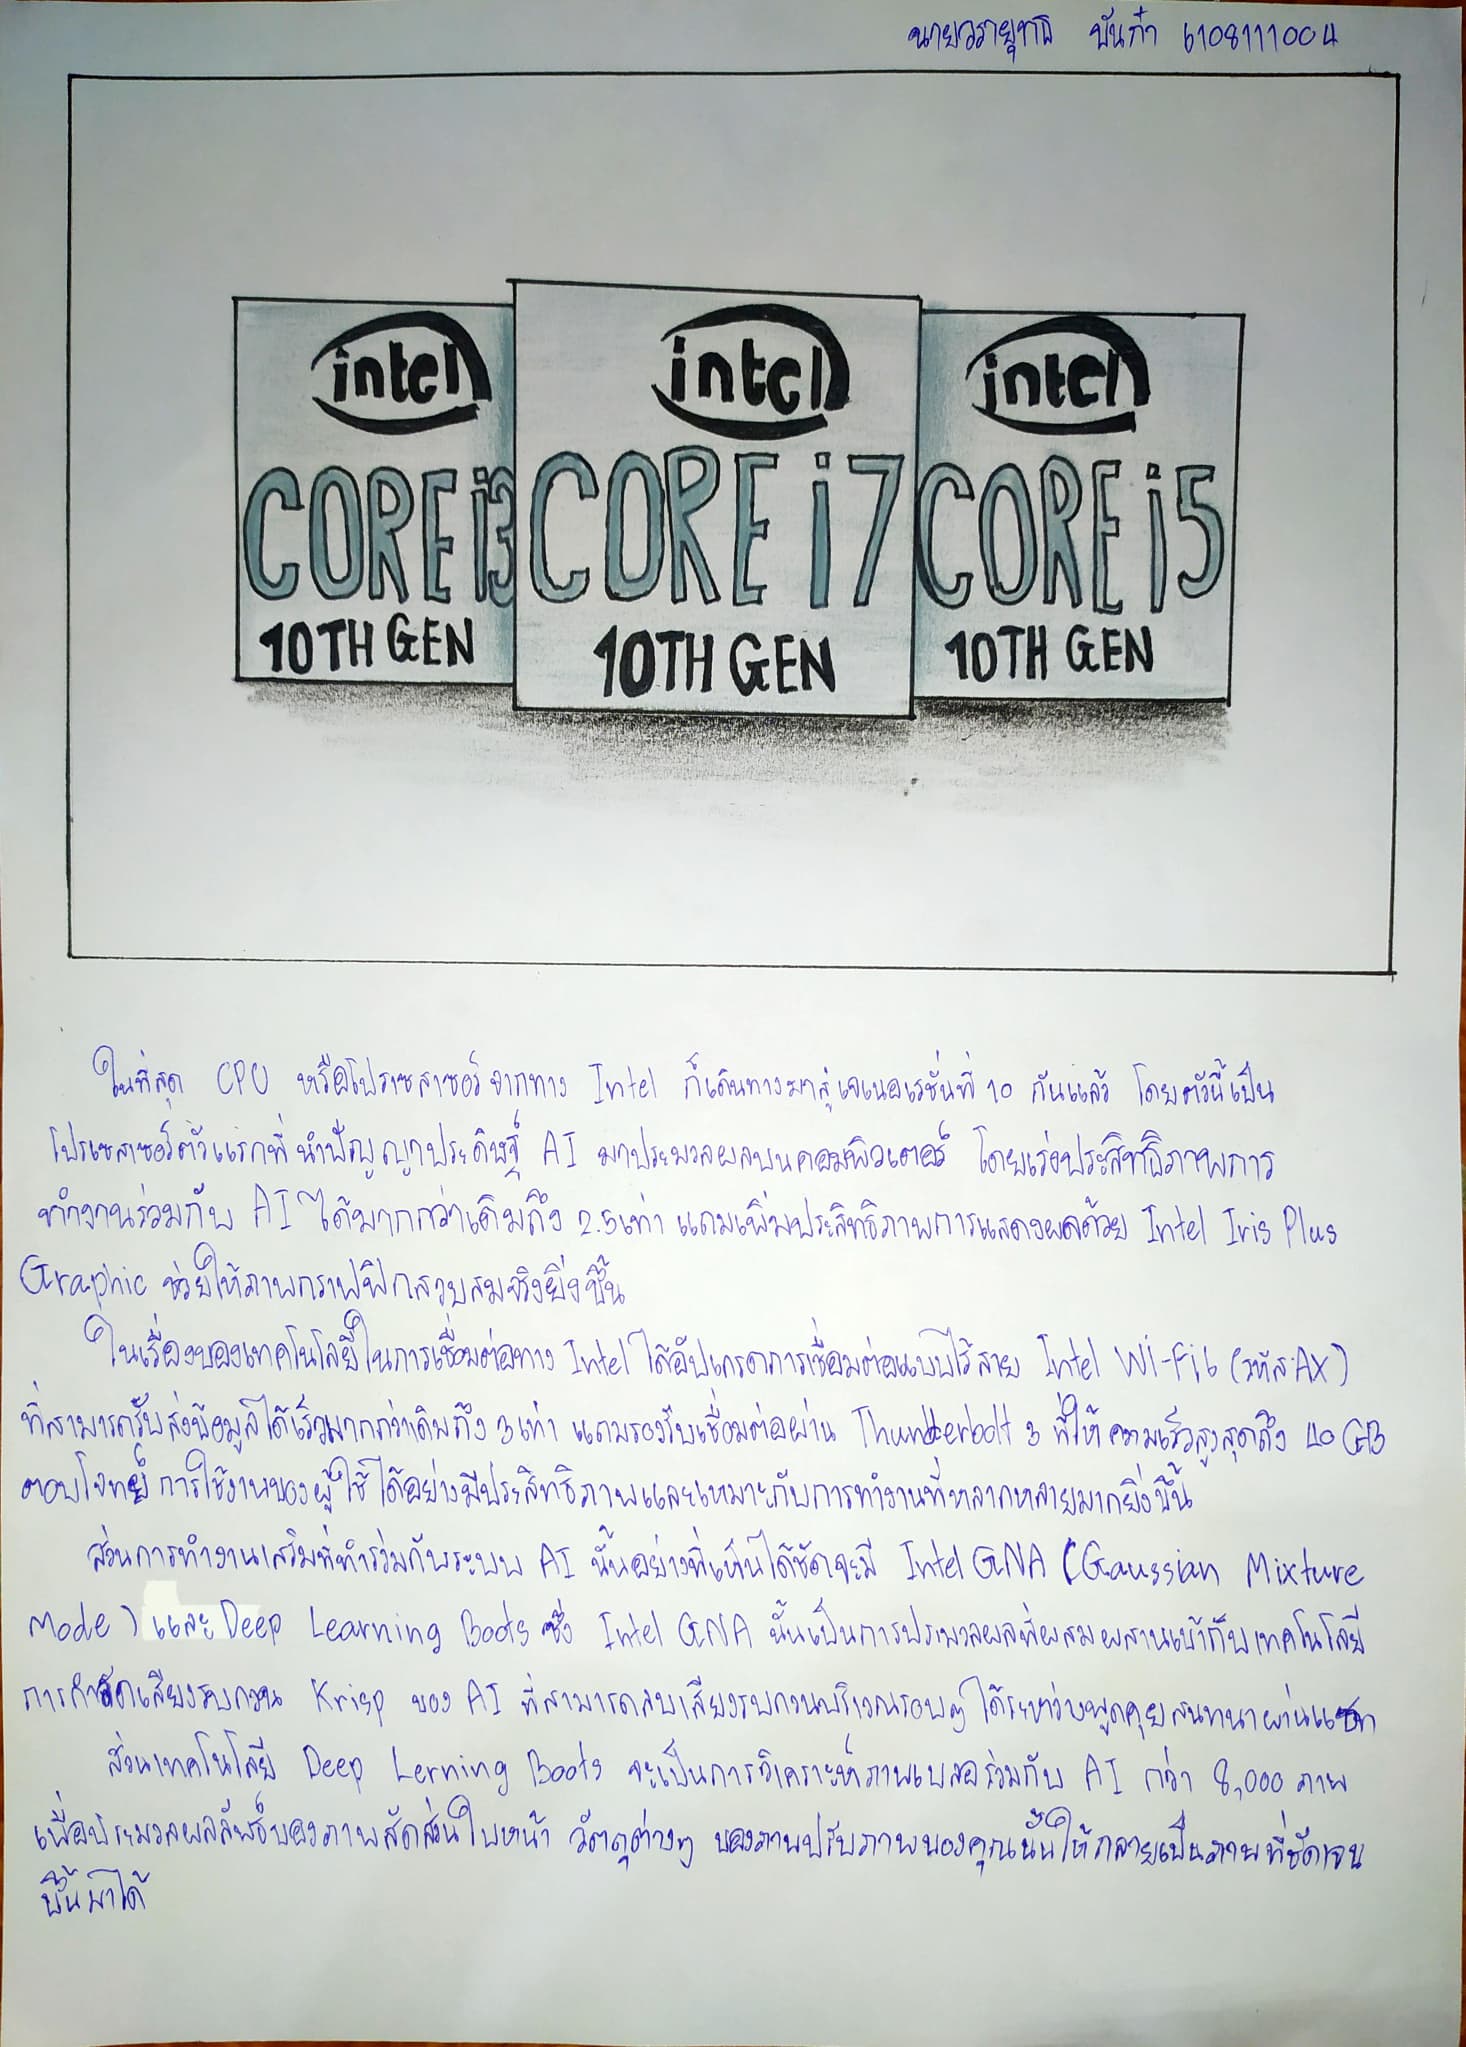 นายวรายุทธ ขันก๋า 6108111004
intel intel intel
CORE i3 CORE i7 CORE i5
10TH GEN 10TH GEN 10TH GEN
ในที่สุด CPU หรือโปรเซสเซอร์จากทาง Intel ก็เดินทางมาสู่เจเนอเรชั่นที่ 10 กันแล้ว โดยตัวนี้เป็น
โปรเซสเซอร์ตัวแรกที่นำปัญญาประดิษฐ์ AI มาประมวลผลบนคอมพิวเตอร์ โดยเร่งประสิทธิภาพการ
ทำงานร่วมกับ AI ได้มากกว่าเดิมถึง 2.5 เท่า แถมเพิ่มประสิทธิภาพการแสดงผลด้วย Intel Iris Plus
Graphic ช่วยให้ภาพกราฟฟิกสวยสมจริงยิ่งขึ้น
ในเรื่องของเทคโนโลยีในการเชื่อมต่อทาง Intel ได้อัปเกรดการเชื่อมต่อแบบไร้สาย Intel Wi-Fi 6 (รหัส AX)
ที่สามารถรับส่งข้อมูลได้เร็วมากกว่าเดิมถึง 3 เท่า แถมรองรับเชื่อมต่อผ่าน Thunderbolt 3 ที่ให้ความเร็วสูงสุดถึง 40 GB
ตอบโจทย์การใช้งานของผู้ใช้ได้อย่างมีประสิทธิภาพและเหมาะกับการทำงานที่หลากหลายมากยิ่งขึ้น
ส่วนการทำงานเสริมที่ทำร่วมกับระบบ AI นั้นอย่างที่เห็นได้ชัดจะมี Intel GNA (Gaussian Mixture
Mode) และ Deep Learning Boots ซึ่ง Intel GNA นั้นเป็นการประมวลผลที่ผสมผสานเข้ากับเทคโนโลยี
การกำจัดเสียงรบกวน Krisp ของ AI ที่สามารถลบเสียงรบกวนบริเวณรอบๆ ได้ระหว่างพูดคุยสนทนาผ่านแชท
ส่วนเทคโนโลยี Deep Lerning Boots จะเป็นการวิเคราะห์ภาพเบลอร่วมกับ AI กว่า 8,000 ภาพ
เพื่อประมวลผลลัพธ์ของภาพสัดส่วนใบหน้า วัตถุต่างๆ ของภาพปรับภาพของคุณนั้นให้กลายเป็นภาพที่ชัดเจน
ขึ้นมาได้